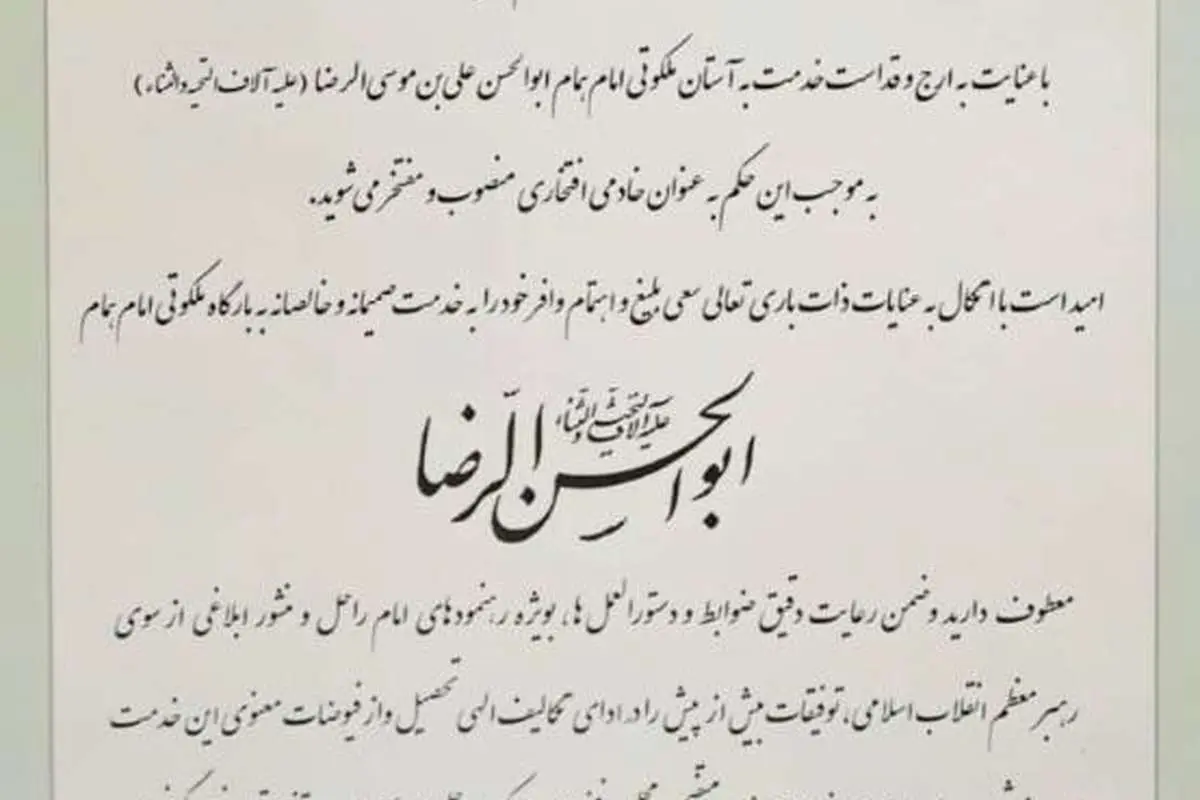 با عنایت به ارج و قداست خدمت به آستان ملکوتی امام همام ابوالحسن علی بن موسی الرضا (علیه آلاف التحیه والثناء)
به موجب این حکم به عنوان خادمی افتخاری منصوب و مفتخر می شوید.
امید است با اتکال به عنایات ذات باری تعالی سعی بلیغ و اهتمام وافر خود را به خدمت صمیمانه و خالصانه به بارگاه ملکوتی امام همام
ابوالحسن الرّضا علیه آلاف التحیة والثناء
معطوف دارید و ضمن رعایت دقیق ضوابط و دستورالعمل ها، بویژه رهنمودهای امام راحل و منشور ابلاغی از سوی
رهبر معظم انقلاب اسلامی، توفیقات بیش از پیش را در ادای تکالیف الهی تحصیل و از فیوضات معنوی این خدمت